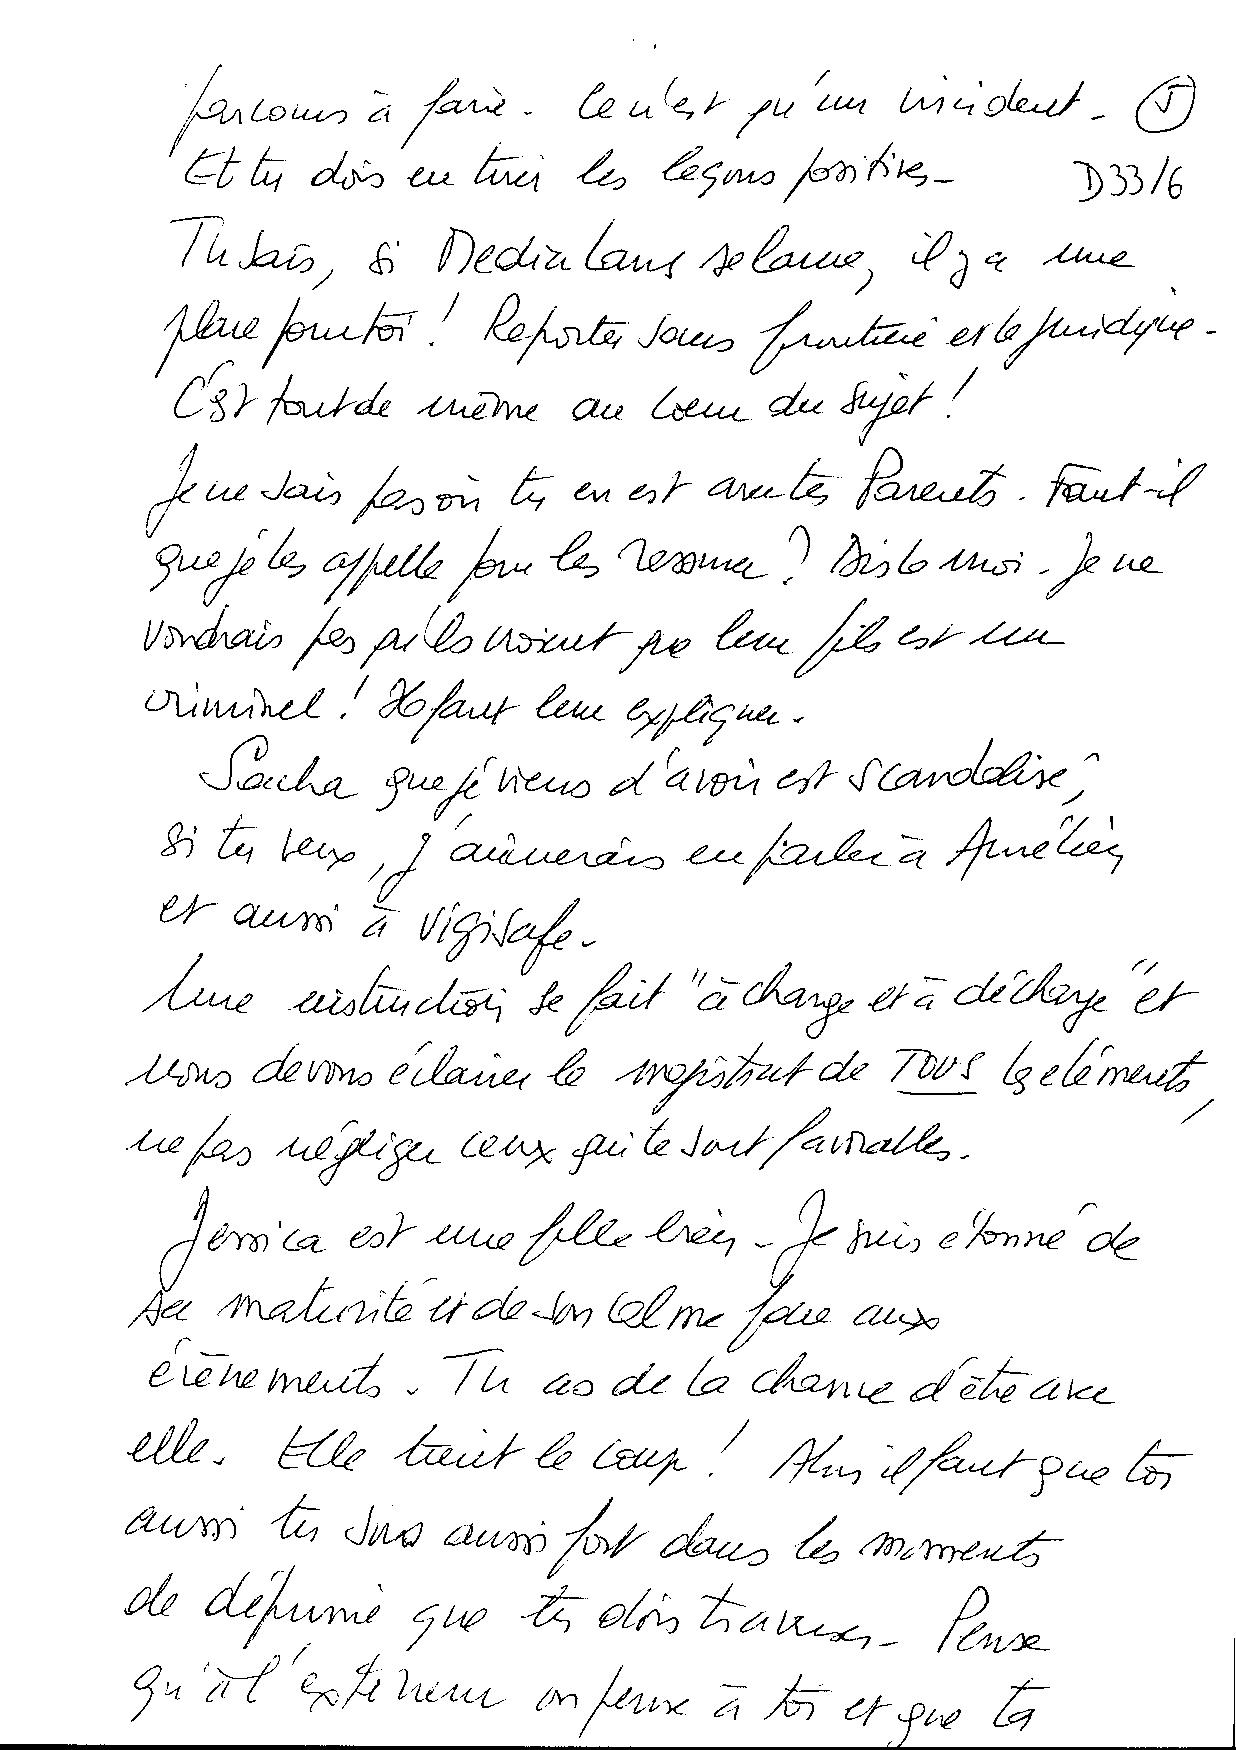 parcours à faire. Ce n'est qu'un incident. 5
Et tu dois en tirer les leçons positives. D33/6
Tu sais, si Mediatans se lance, il y a une
place pour toi ! Reporter sans frontière et le juridique.
C'est tout de même au coeur du sujet !
Je ne sais pas où tu en est avec tes Parents. Faut-il
que je les appelle pour les rassurer ? Dis le moi. Je ne
voudrais pas qu'ils croient que leur fils est un
criminel ! Il faut leur expliquer.
Sacha que je viens d'avoir est scandalisé,
si tu veux, j'aimerais en parler à Amélien
et aussi à Vigisafe.
Une instruction se fait "à charge et à décharge" et
nous devons éclairer le magistrat de TOUS les eléments,
ne pas négliger ceux qui te sont favorables.
Jessica est une fille bien. Je suis étonné de
sa maturité et de son calme face aux
évènements. Tu as de la chance d'être avec
elle. Elle tient le coup ! Alors il faut que toi
aussi tu sois aussi fort dans les moments
de déprime que tu dois traverser. Pense
qu'à l'extérieur on pense à toi et que ta